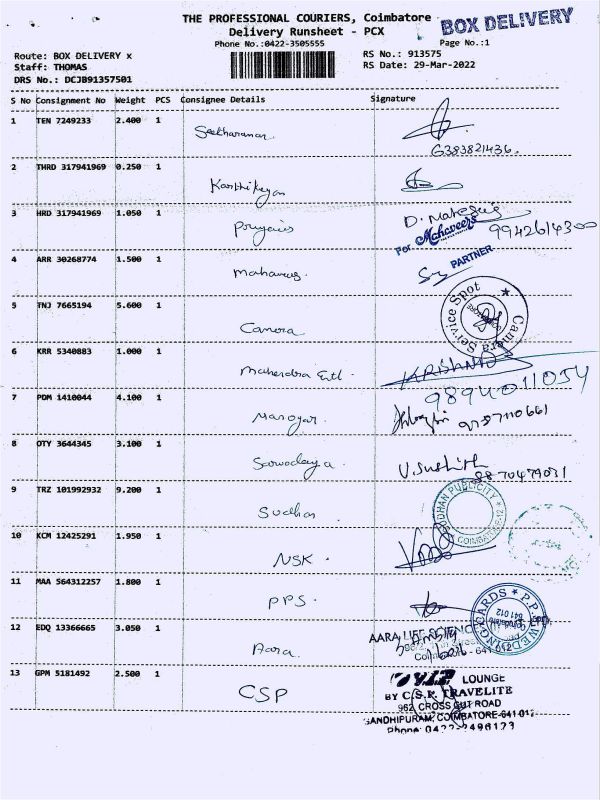 THE PROFESSIONAL COURIERS, Coimbatore
Delivery Runsheet - PCX
BOX DELIVERY
Phone No.:0422-3505555
Page No.:1
Route: BOX DELIVERY x
RS No.: 913575
Staff: THOMAS
RS Date: 29-Mar-2022
DRS No.: DCJB91357501
S No Consignment No Weight PCS Consignee Details Signature
1 TEN 7249233 2.400 1 Seetharaman
G383821436.
2 THRD 317941969 0.250 1
Karthikeyan
3 HRD 317941969 1.050 1
D. Mahesh
For Mahaveers 9942614300
PARTNER
4 ARR 30268774 1.500 1
Mahaveers.
5 TNJ 7665194 5.600 1 Camera
Camera Service Spot
COIMBATORE
6 KRR 5340883 1.000 1
Mahendra Entl. KRISHNA
9894011054
7 PDM 1410044 4.100 1
Manogar. 9787110661
8 OTY 3644345 3.100 1
Sarvodaya. V. Sushith
8870479031
9 TRZ 101992932 9.200 1
Sudhan
SUDHAN PUBLICITY
COIMBATORE-12
10 KCM 12425291 1.950 1
NSK.
11 MAA 564312257 1.800 1
PPS.
P.P.S. WEDDING CARDS
641 012
12 EDQ 13366665 3.050 1
Aara
AARA LIFE SCIENCE
Coimbatore - 641 012
13 GPM 5181492 2.500 1
CSP
V.I.P. LOUNGE
BY C.S.P. TRAVELITE
962 CROSS CUT ROAD
GANDHIPURAM, COIMBATORE-641 012
Phone: 0422-2496123